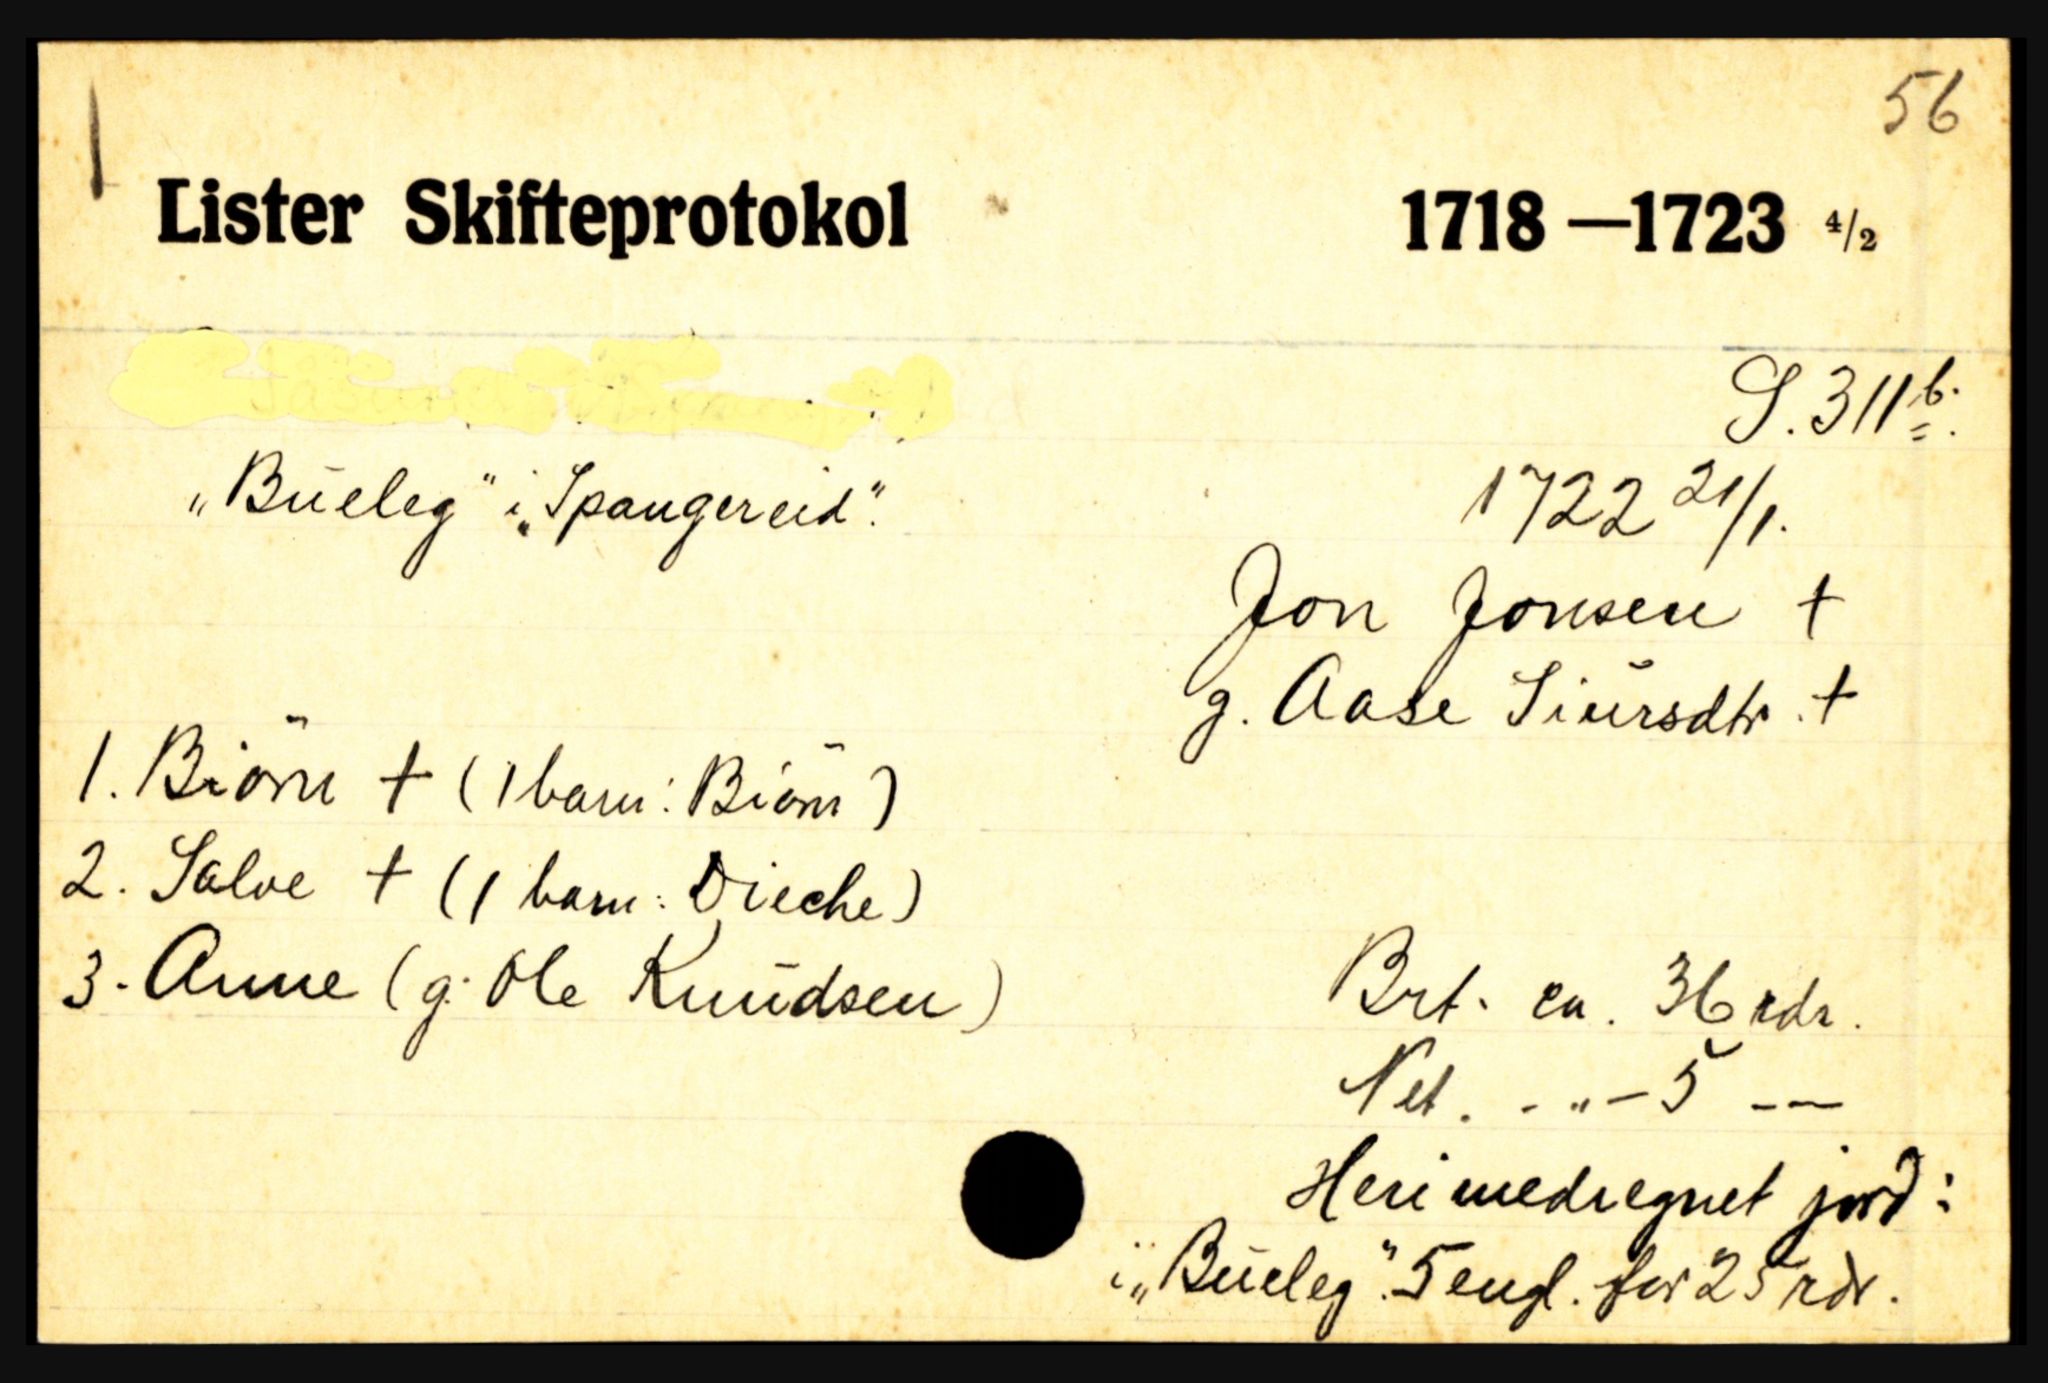 56
Lister Skifteprotokol 1718 — 1723 4/2
S. 311 b.
"Bueleg" i "Spangereid".
1722 21/1.
Jon Jonsen †
g. Aase Siursdtr. †
1. Biörn † (1 barn: Biörn)
2. Salve † (1 barn: Dieche)
3. Anne (g. Ole Knudsen)
Brt. ca. 36 rdr.
Net. - " - 5 —
Heri medregnet jord:
i "Bueleg". 5 engl. for 25 rdr.